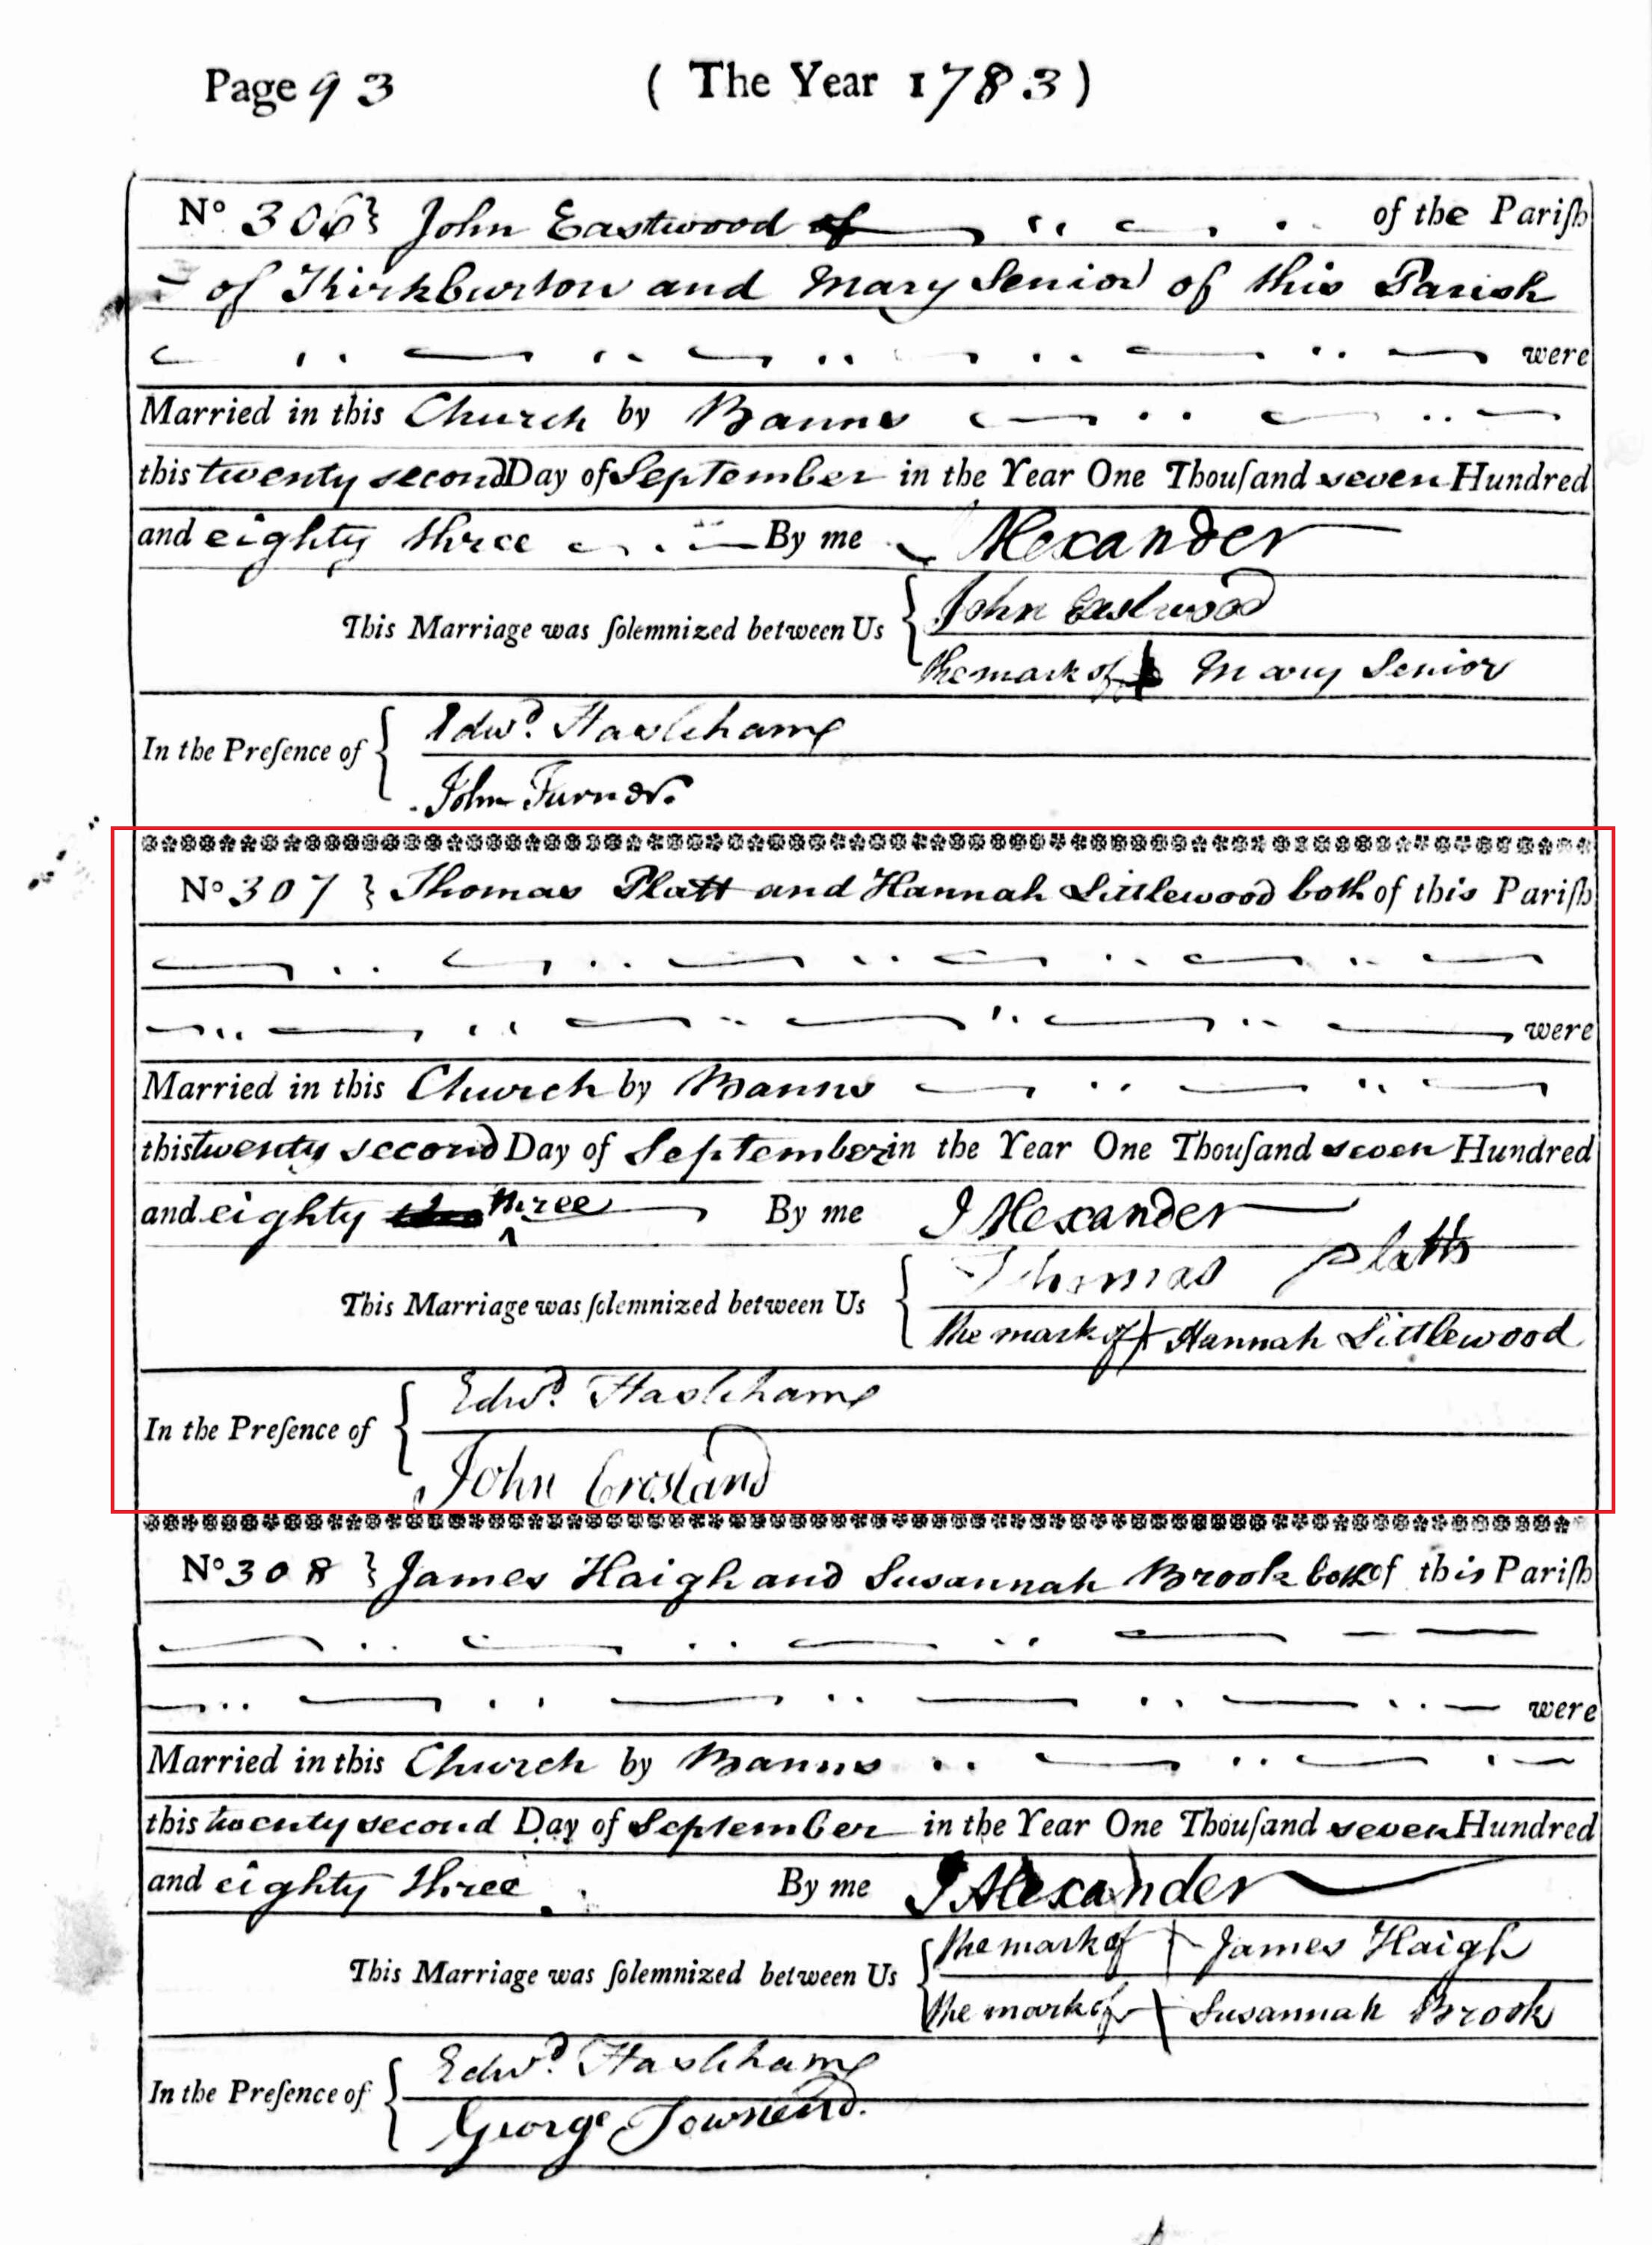 Page 93 ( The Year 1783)
No. 306} John Eastwood of of the Pariſh
of Kirkburton and Mary Senior of this Parish
were
Married in this Church by Banns
this twenty second Day of September in the Year One Thouſand seven Hundred
and eighty three By me Alexander
John Eastwood
This Marriage was ſolemnized between Us {
the mark of Mary Senior
Edwd.
In the Preſence of {
John Turner.
No 307 } Thomas Platt and Hannah Littlewood both of this Pariſh
were
Married in this Church by Banns
this twenty second Day of September in the Year One Thouſand seven Hundred
and eighty three By me J Alexander
Thomas Platts
This Marriage was ſolemnized between Us {
the mark of Hannah Littlewood
Edwd.
In the Preſence of {
John Crosland
No 308 } James Haigh and Susannah Brook both of this Pariſh
were
Married in this Church by Banns
this twenty second Day of September in the Year One Thouſand seven Hundred
and eighty three By me J Alexander
the mark of James Haigh
This Marriage was ſolemnized between Us {
the mark of Susannah Brook
Edwd.
In the Preſence of {
George Townend.